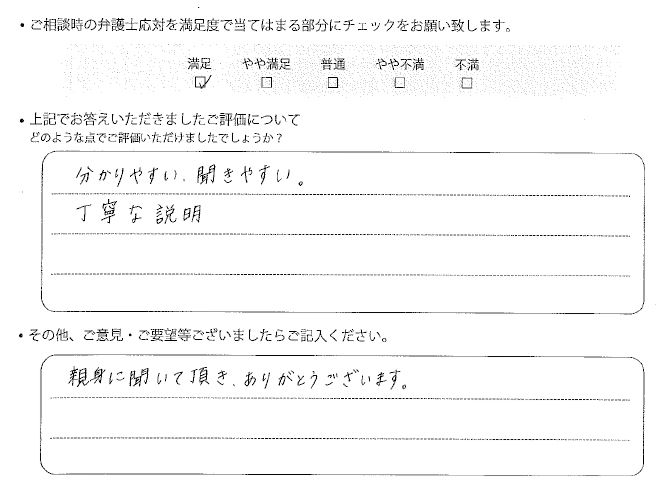 ・ご相談時の弁護士応対を満足度で当てはまる部分にチェックをお願い致します。
満足 やや満足 普通 やや不満 不満
☑ □ □ □ □
・上記でお答えいただきましたご評価について
どのような点でご評価いただけましたでしょうか？
分かりやすい、聞きやすい。
丁寧な説明
・その他、ご意見・ご要望等ございましたらご記入ください。
親身に聞いて頂き、ありがとうございます。